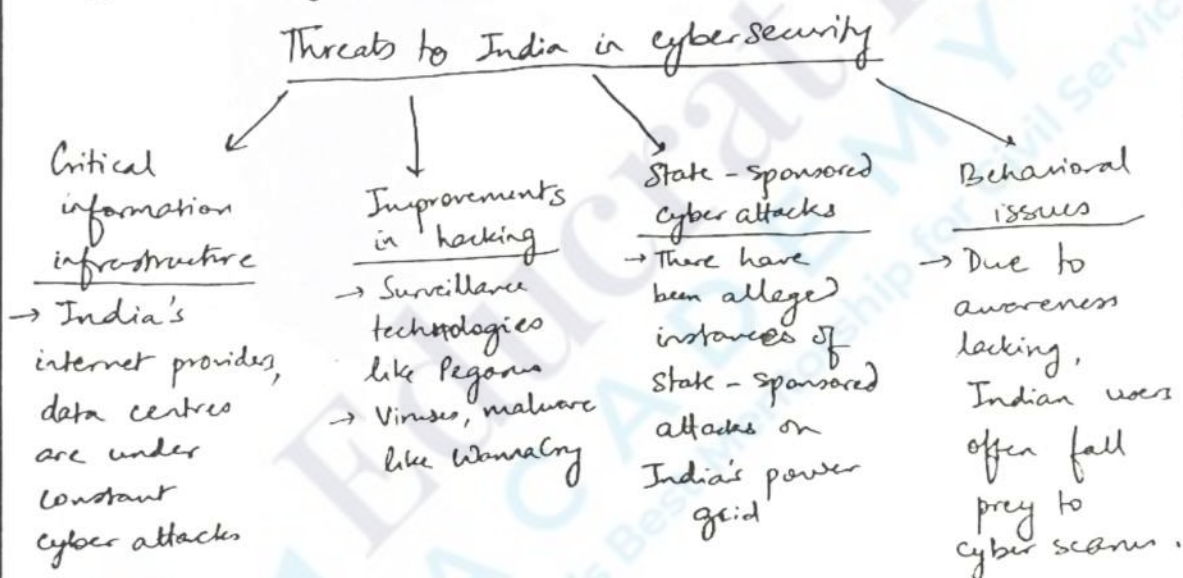 Threats to India in cybersecurity
Critical
information
infrastructure
→ India's
internet providers,
data centres
are under
constant
cyber attacks
Improvements
in hacking
→ Surveillance
technologies
like Pegasus
→ Viruses, malware
like WannaCry
State-sponsored
cyber attacks
→ There have
been alleged
instances of
State-sponsored
attacks on
India's power
grid
Behavioral
issues
→ Due to
awareness
lacking,
Indian users
often fall
prey to
cyber scams.
Educrat
ACADEMY
's Best Mentorship for Civil Servic